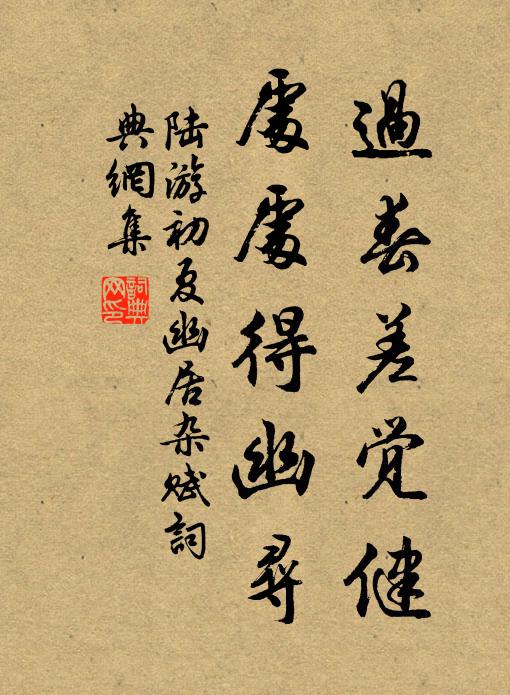 過春差觉健
處處得幽尋
陆游初夏幽居杂赋詞
典網集
詞典
网印